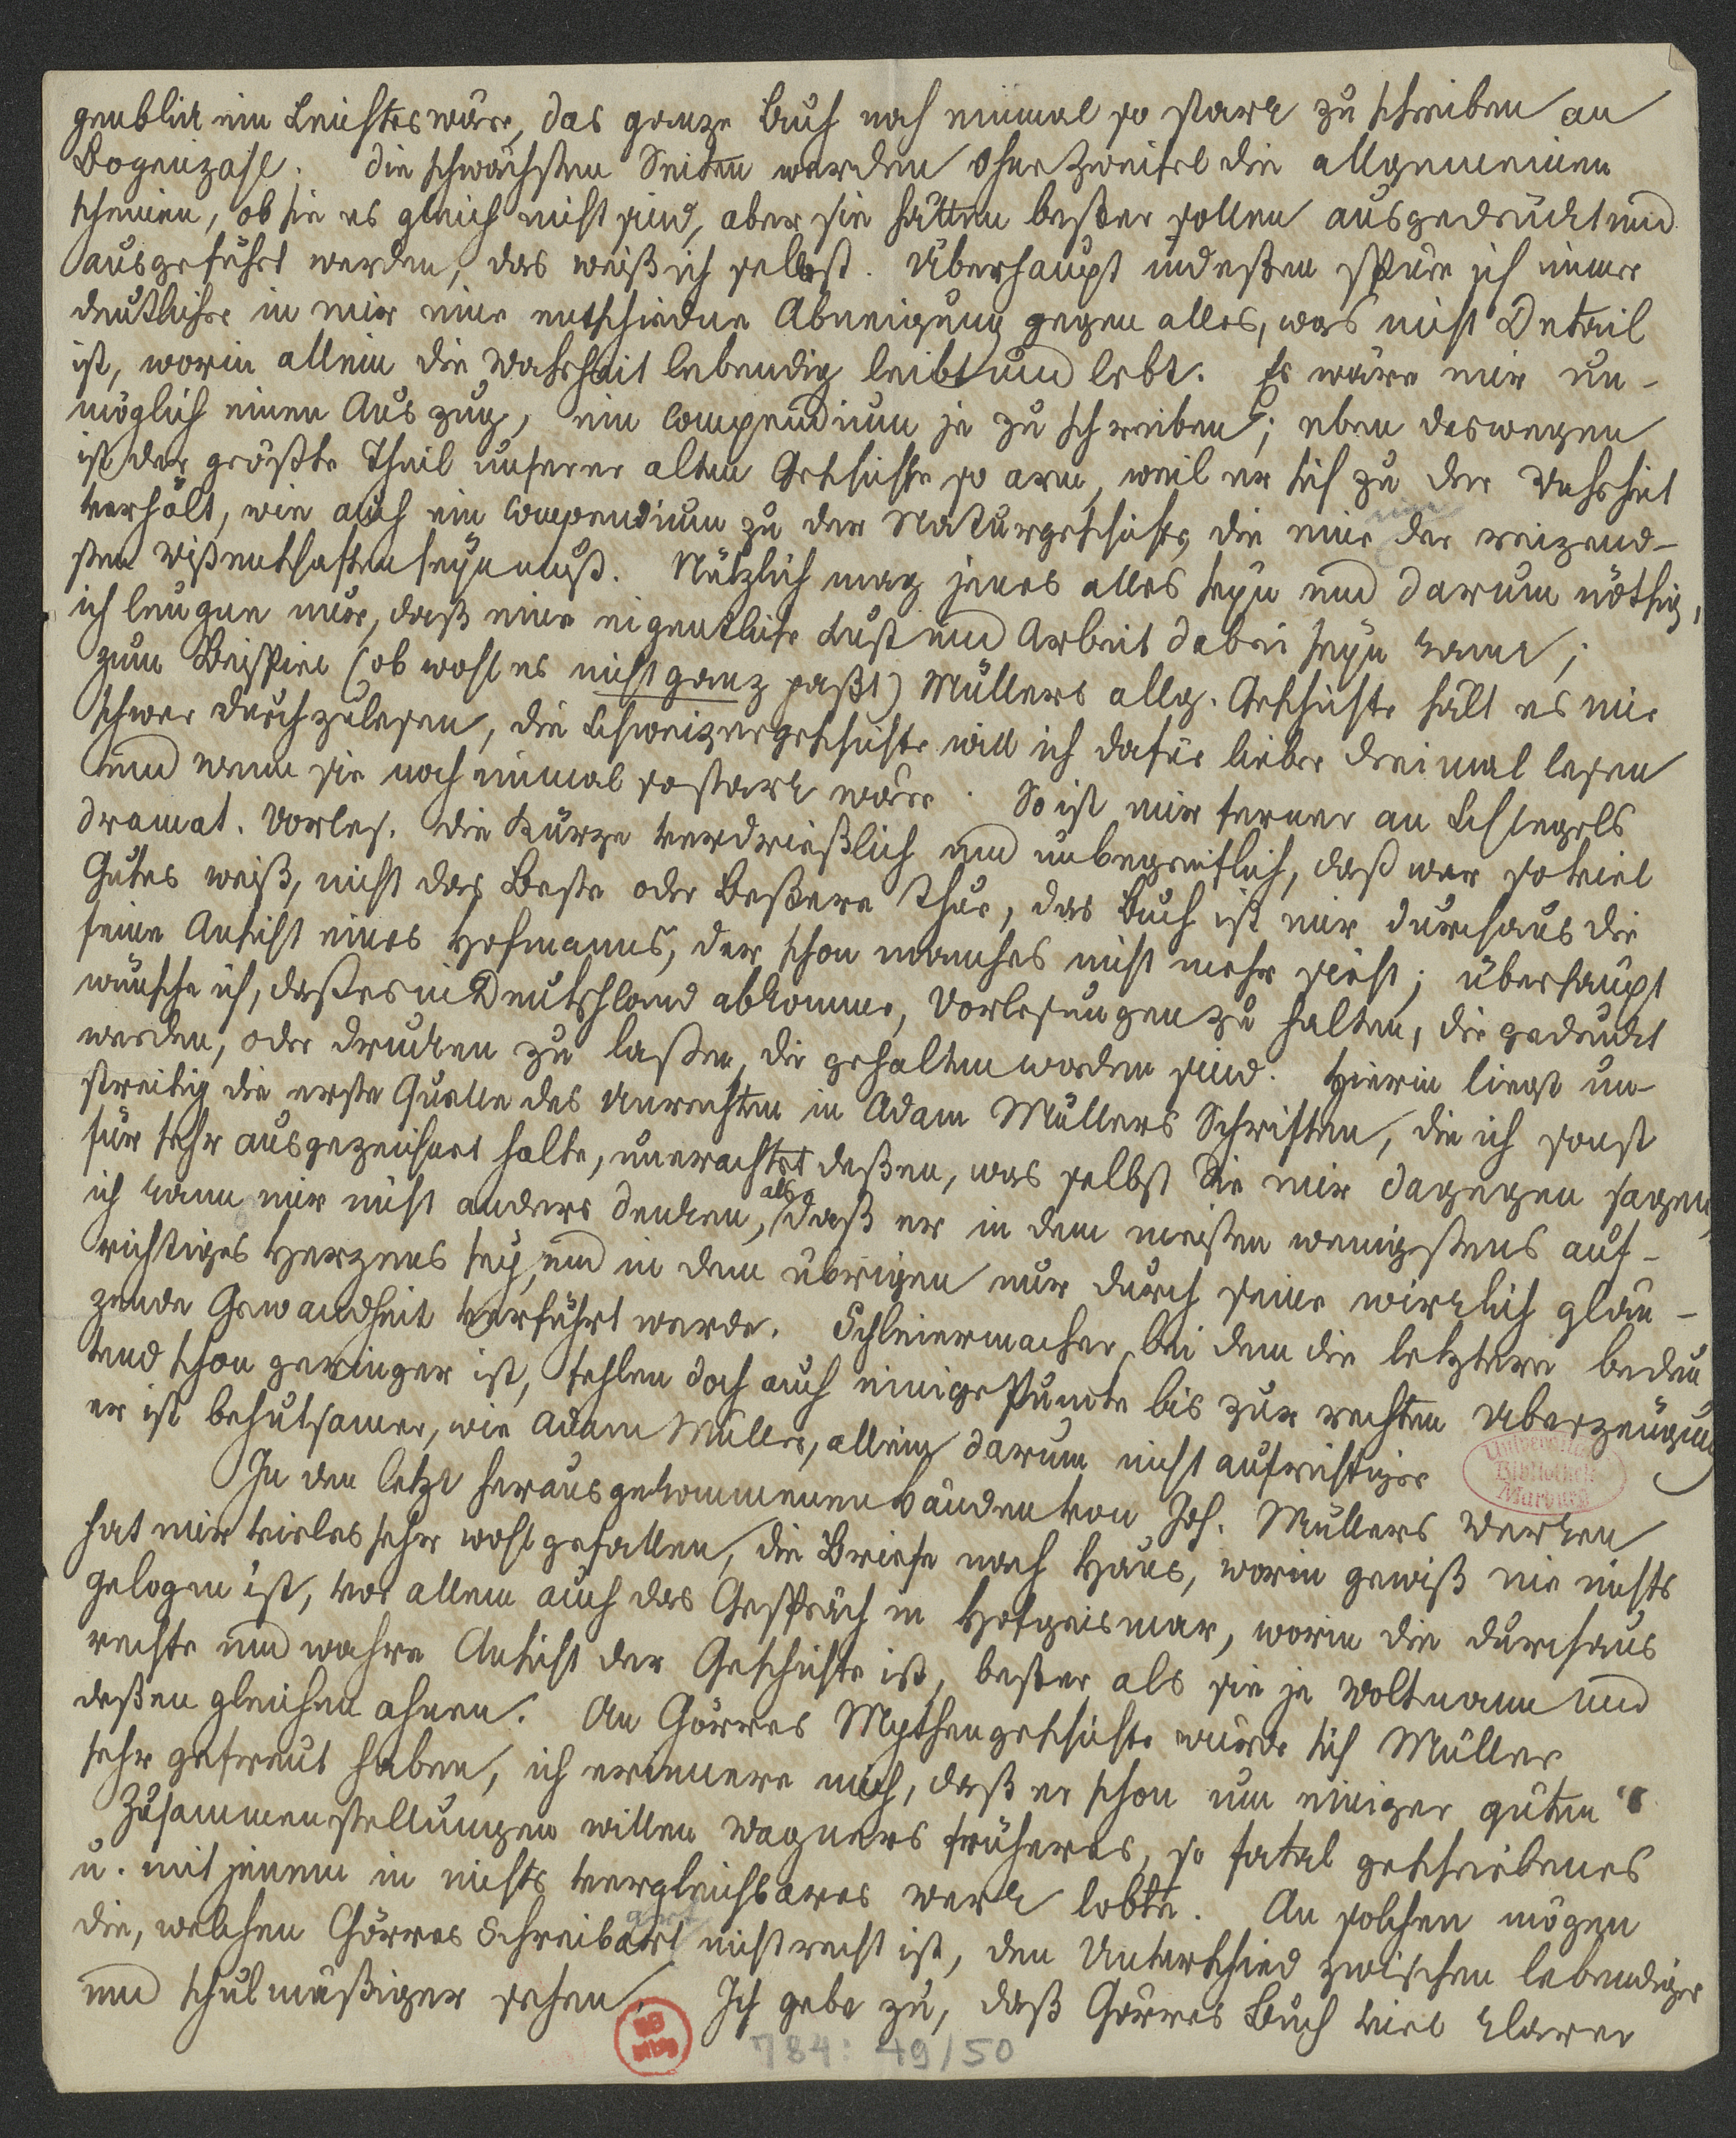 genblick ein Leichtes wäre, das ganze Buch noch einmal so stark zu schreiben an
Bogenzahl. Die schwächsten Seiten werden ohne Zweifel die allgemeinen
scheinen, ob sie es gleich nicht sind, aber sie hätten beßer sollen ausgedrückt und
ausgeführt werden, das weiß ich selbst. Überhaupt indeßen spüre ich immer
deutlicher in mir eine entschiedne Abneigung gegen alles, was nicht Detail
ist, worin allein die Wahrheit lebendig leibt und lebt. Es wäre mir un-
möglich einen Auszug, ein Compendium je zu schreiben; eben deswegen
ist der größte Theil unserer alten Geschichte so arm, weil er sich zu der Wahrheit
verhält, wie auch ein Compendium zu der Naturgeschichte, die eine der reizend-
sten Wißenschaften seyn muß. Nützlich mag jenes alles seyn und darum nöthig,
ich leugne nur, daß eine eigentliche Lust und Arbeit dabei seyn kann;
zum Beispiel (ob wohl es nicht ganz paßt) Müllers allg. Geschichte hält es mir
schwer durchzulesen, die Schweizergeschichte will ich dafür lieber dreimal lesen
und wenn sie noch einmal so stark wäre. So ist mir ferner an Schlegels
dramat. Vorles. die Kürze verdrießlich und unbegreiflich, daß wer so viel
Gutes weiß, nicht das Beste oder Beßere thue, das Buch ist mir durchaus die
feine Ansicht eines Hofmanns, der schon manches nicht mehr sieht; überhaupt
wünsche ich, daß es in Deutschland abkomme, Vorlesungen zu halten, die gedruckt
werden, oder drucken zu laßen, die gehalten worden sind. Hierin liegt un-
streitig die erste Quelle des Unrechten in Adam Müllers Schriften, die ich sonst
für sehr ausgezeichnet halte, unerachtet deßen, was selbst Sie mir dagegen sagen,
ich kann mir nicht anders denken, als daß er in dem meisten wenigstens auf-
richtiges Herzens sey, und in dem übrigen nur durch seine wirklich glän-
zende Gewandheit verführt werde. Schleiermacher, bei dem die letztere bedeu
tend schon geringer ist, fehlen doch auch einige Puncte bis zur rechten Überzeugung
er ist behutsamer, wie Adam Müller, allein darum nicht aufrichtiger
In den letzt herausgekommenen Bänden von Joh. Müllers Werken
hat mir vieles sehr wohl gefallen, die Briefe nach Haus, worin gewiß nie nichts
gelogen ist, vor allem auch das Gespräch in Hofgeismar, worin die durchaus
rechte und wahre Ansicht der Geschichte ist, beßer als sie je Woltmann und
deßen gleichen ahnen. An Görres Mythengeschichte würde sich Müller
sehr gefreut haben, ich erinnere mich, daß er schon um einiger guten
Zusammenstellungen willen Wagners früheres, so fatal geschriebenes
u. mit jenem in nichts vergleichbares Werk lobte. An solchen mögen
die, welchen Görres Schreibart nicht recht ist, den Unterschied zwischen lebendiger
und schulmäßiger sehen. Ich gebe zu, daß Görres Buch viel klarer
Universitäts
Bibliothek
Marburg
784: 49/50